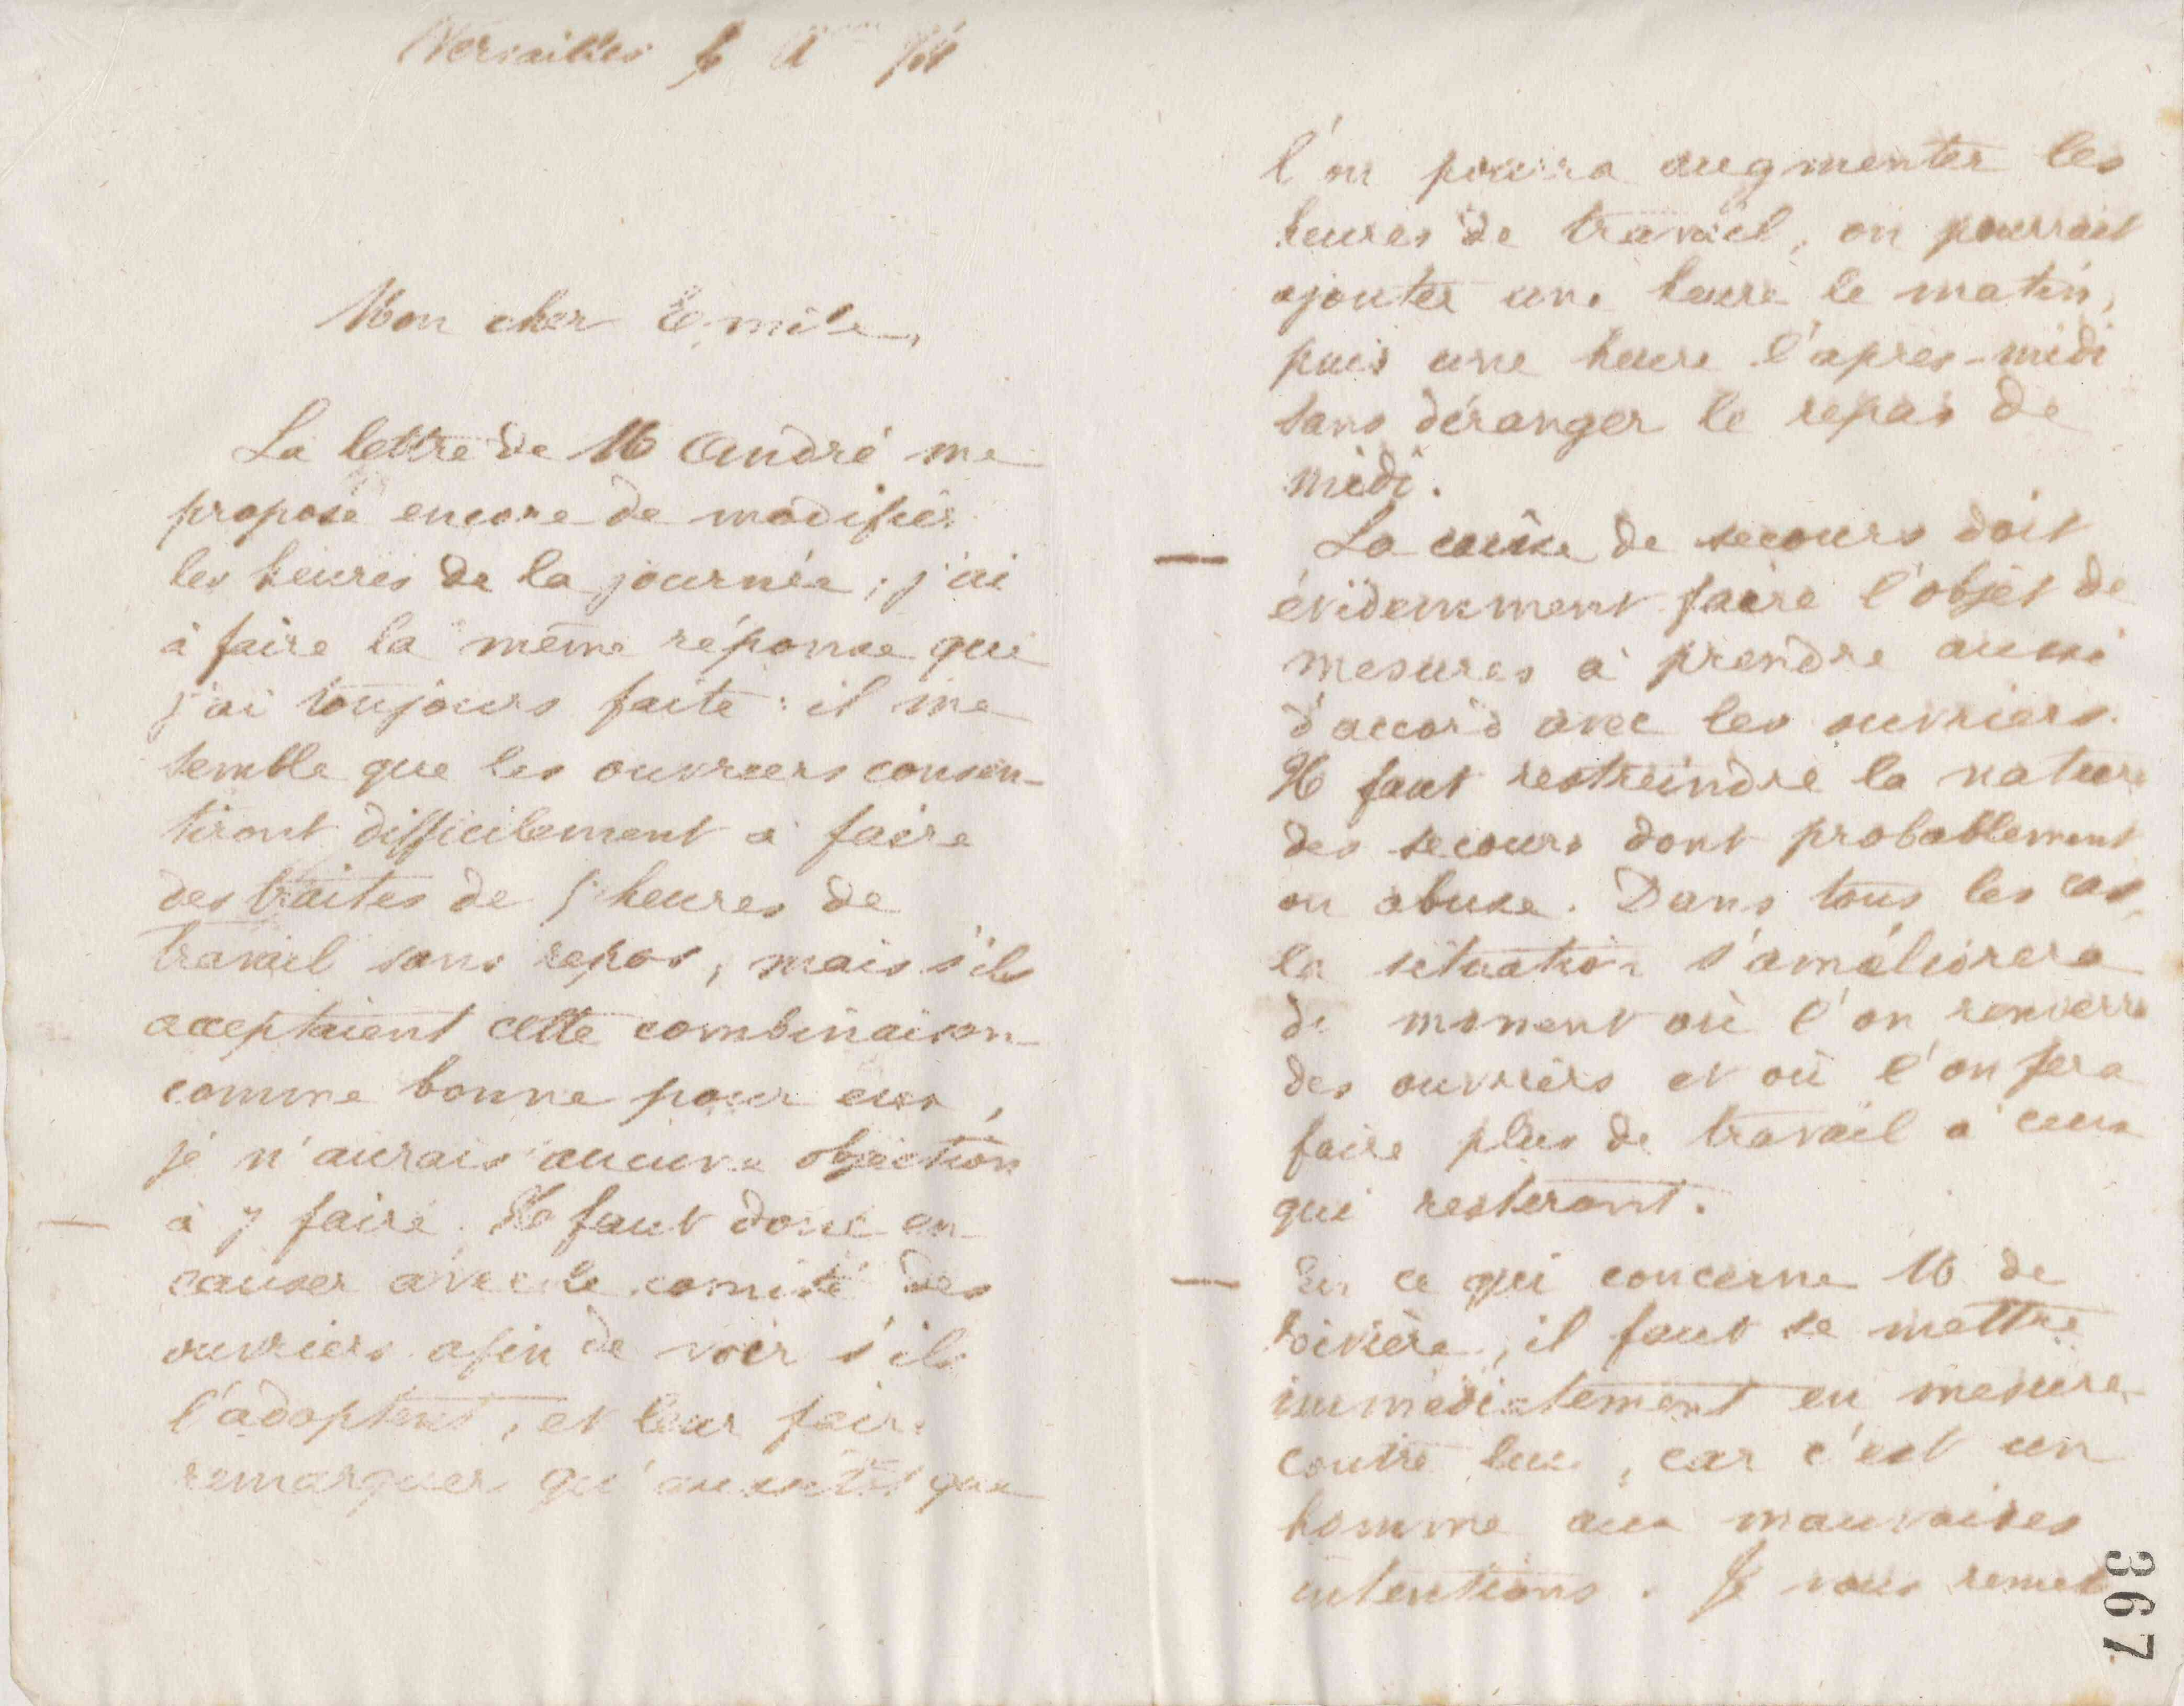 Versailles
Mon cher Emile,
La lettre de M André me
propose encore de modifier
les heures de la journée ; j'ai
à faire la même réponse que
j'ai toujours faite : il me
semble que les ouvriers consen-
tiront difficilement à faire
des traites de 5 heures de
travail sans repos, mais s'ils
acceptaient cette combinaison
comme bonne pour eux,
je n'aurais aucune objection
— à y faire. Il faut donc en
causer avec le comité des
ouvriers afin de voir s'ils
l'adoptent, et leur faire
remarquer qu'aussitôt que
l'on pourra augmenter les
heures de travail, on pourrait
ajouter une heure le matin,
puis une heure l'après-midi
sans déranger le repas de
midi.
— La caisse de secours doit
évidemment faire l'objet de
mesures à prendre aussi
d'accord avec les ouvriers.
Il faut restreindre la nature
des secours dont probablement
on abuse. Dans tous les cas,
la situation s'améliorera
du moment où l'on renverra
des ouvriers et où l'on fera
faire plus de travail à ceux
qui resteront.
— En ce qui concerne M de
Rivière, il faut se mettre
immédiatement en mesure
contre lui, car c'est un
homme aux mauvaises
intentions. Je vous remets
367